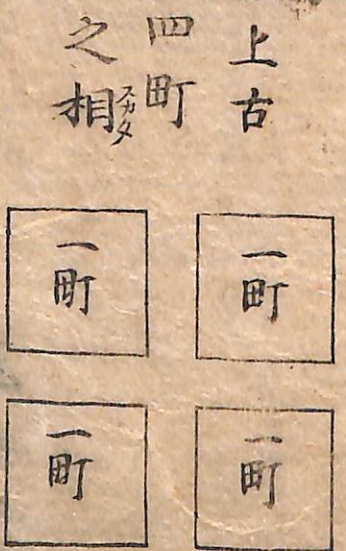 上古
四町
之相スガタ
一町
一町
一町
一町